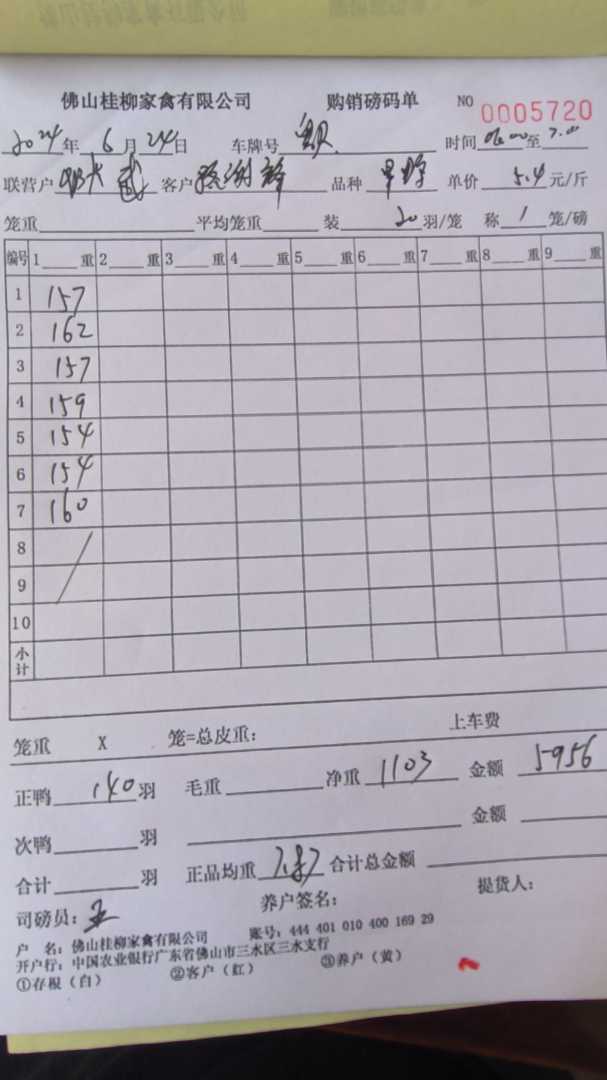 佛山桂柳家禽有限公司 购销磅码单 NO 0005720
2024年 6月 24日 车牌号 时间 至
联营户 客户 品种 单价 5.4 元/斤
笼重 平均笼重 装 20 羽/笼 称 1 笼/磅
编号 1 重 2 重 3 重 4 重 5 重 6 重 7 重 8 重 9 重
1 157
2 162
3 157
4 159
5 154
6 154
7 160
8
9
10
小计
笼重 X 笼=总皮重: 上车费
正鸭 140 羽 毛重 净重 1103 金额 5956
次鸭 羽 金额
合计 羽 正品均重 合计总金额
司磅员: 王 养户签名: 提货人:
户 名: 佛山桂柳家禽有限公司 账号: 444 401 010 400 169 29
开户行: 中国农业银行广东省佛山市三水区三水支行
①存根（白） ②客户（红） ③养户（黄）